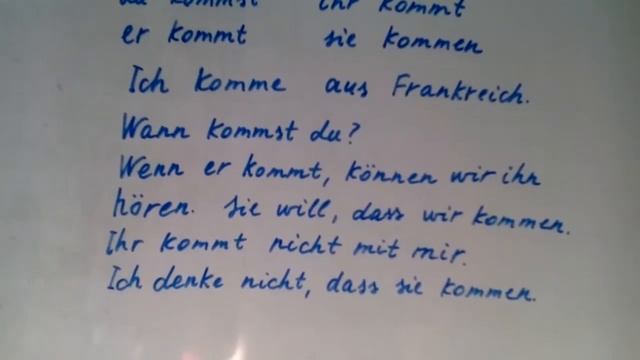 du kommst ihr kommt
er kommt sie kommen
Ich komme aus Frankreich.
Wann kommst du?
Wenn er kommt, können wir ihn
hören. Sie will, dass wir kommen.
Ihr kommt nicht mit mir.
Ich denke nicht, dass sie kommen.